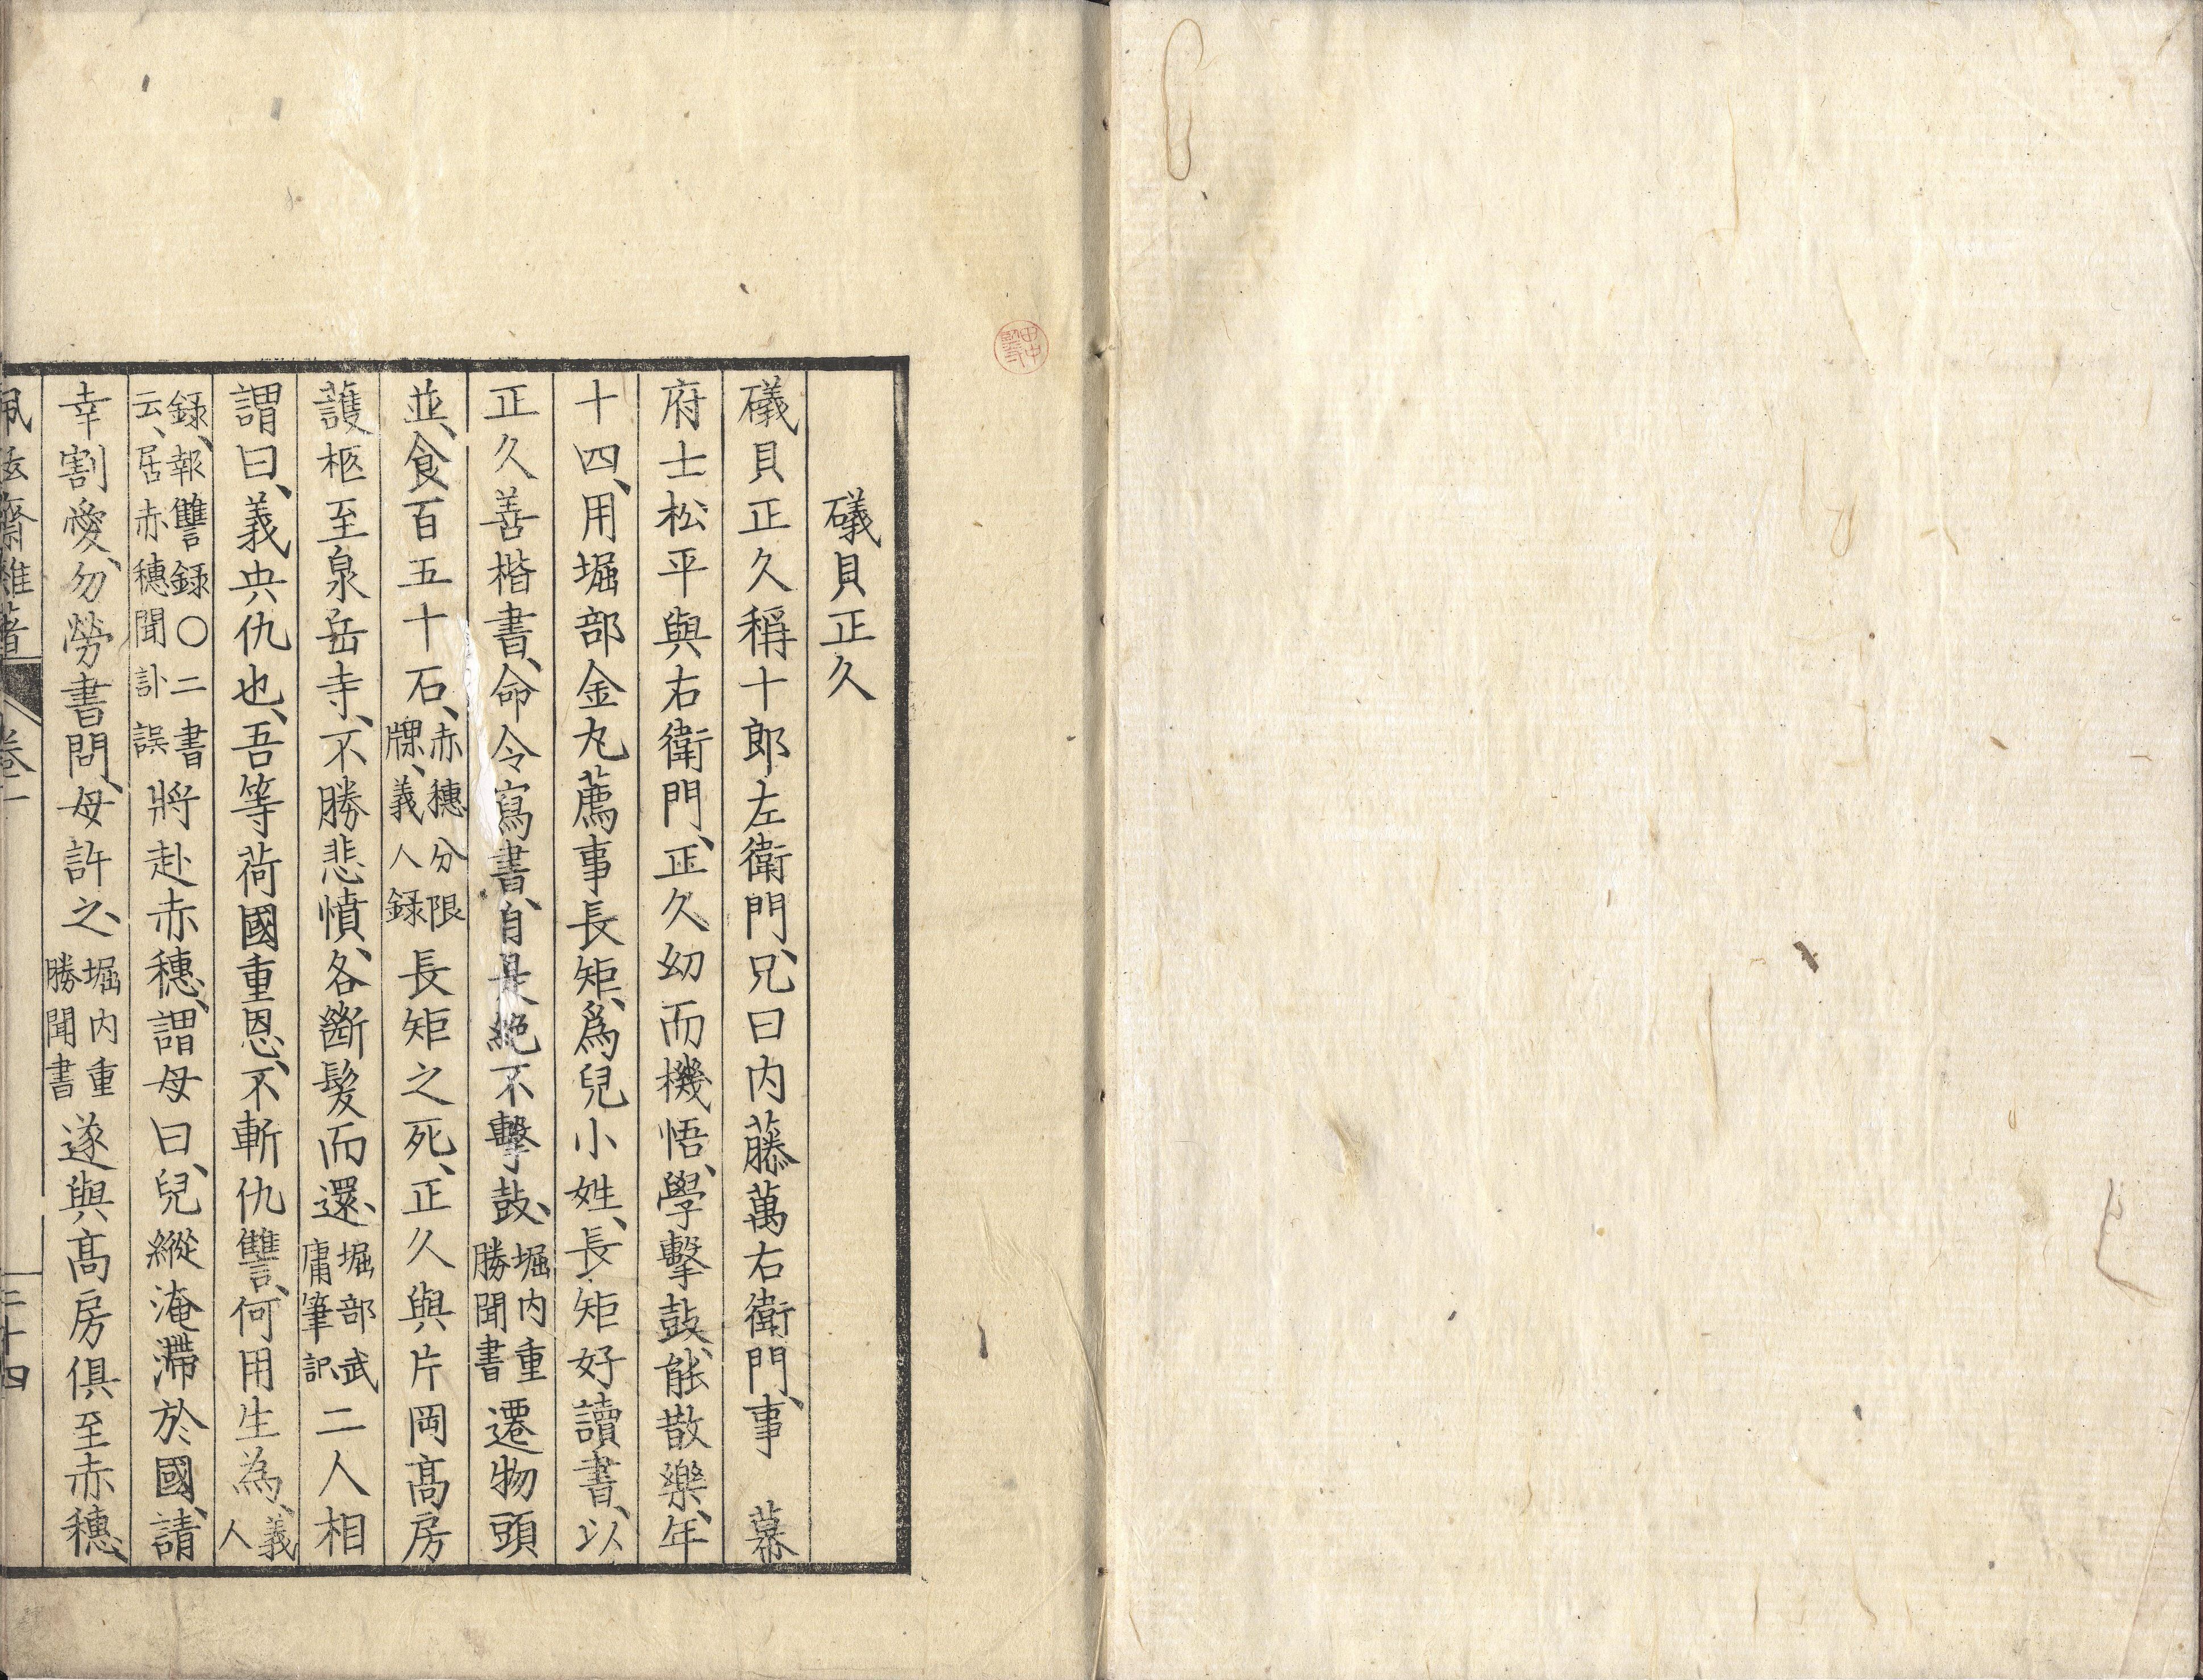 礒貝正久
礒貝正久稱十郎左衛門、兄曰内藤萬右衛門、事　幕
府士松平與右衛門、正久幼而機悟、學擊鼓、能散樂、年
十四、用堀部金丸薦事長矩、爲兒小姓、長矩好讀書、以
正久善楷書、命令寫書、自是絶不擊鼓、堀内重勝聞書遷物頭
並、食百五十石、赤穗分限牒、義人録長矩之死、正久與片岡髙房
護柩至泉岳寺、不勝悲憤、各斷髮而還、堀部武庸筆記二人相
謂曰、義央仇也、吾等荷國重恩、不斬仇讐、何用生為、義人
録、報讐録〇二書云、居赤穗聞訃誤將赴赤穗、謂母曰、兒縱淹滯於國、請
幸割愛、勿勞書問、母許之、堀内重勝聞書遂與髙房俱至赤穗、
齋雜著　卷一　三十四
田中